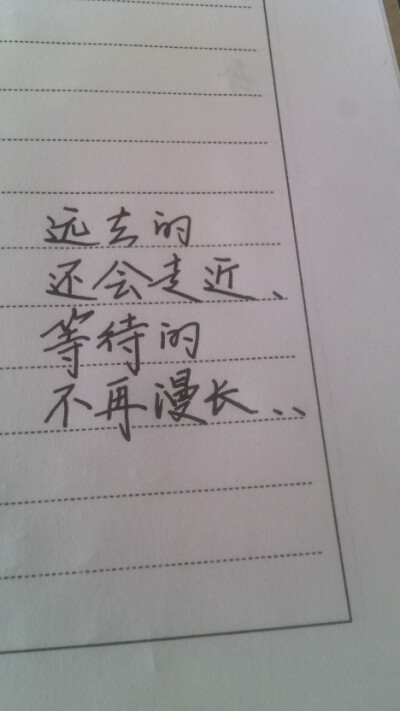 远去的
还会走近、
等待的
不再漫长...